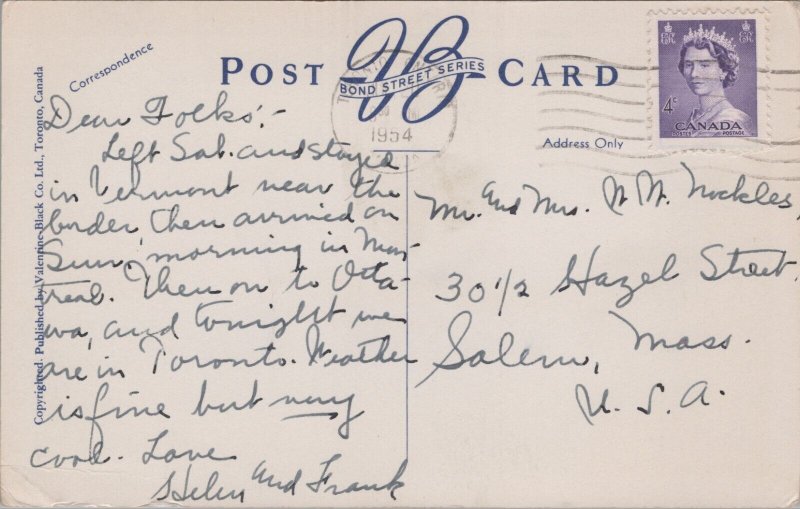 Correspondence
POST CARD
VB
BOND STREET SERIES
1954
4¢
CANADA
POSTES POSTAGE
Address Only
Copyrighted. Published by Valentine-Black Co. Ltd., Toronto, Canada
Dear Folks:-
Left Sat. and stayed
in Vermont near the
border then arrived on
Sun. morning in Mon-
treal. Then on to Otta-
wa, and tonight we
are in Toronto. Weather
is fine but very
cool. Love
Helen and Frank
Mr. and Mrs. W. W. Nockles,
30 1/2 Hazel Street,
Salem, Mass.
U. S. A.